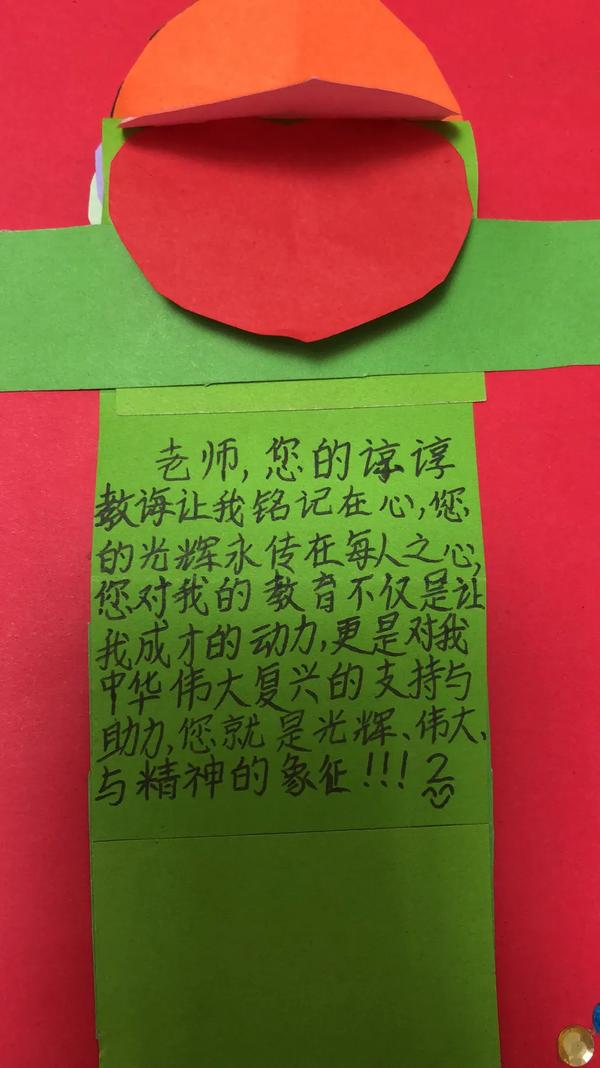 老师,您的谆谆
教诲让我铭记在心,您
的光辉永传在每人之心,
您对我的教育不仅是让
我成才的动力,更是对我
中华伟大复兴的支持与
助力,您就是光辉、伟大、
与精神的象征!!!2